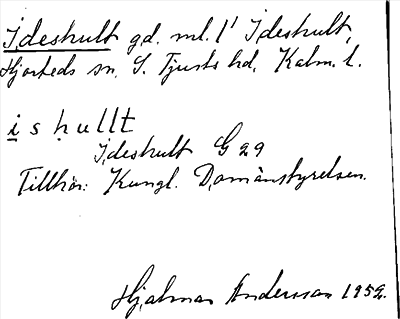 Ideshult gd. ml. 1 i Ideshult,
Hjorteds sn. S. Tjusts hd. Kalm. l.
i s h u l l t
Ideshult G 29
Tillhör: Kungl. Domänstyrelsen.
Hjalmar Andersson 1952.